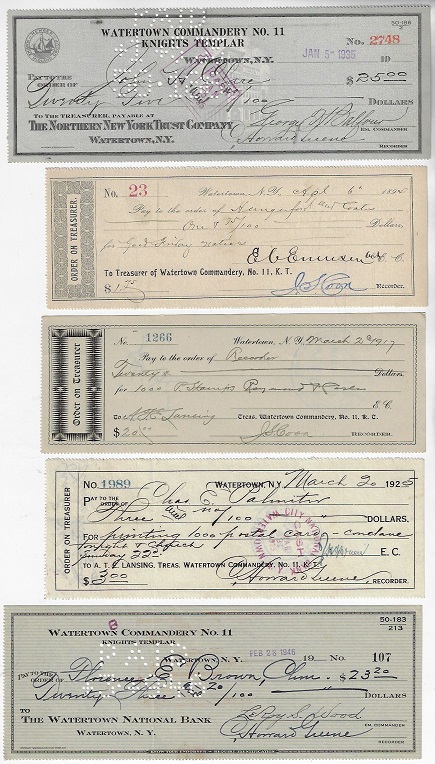 WATERTOWN COMMANDERY NO. 11
KNIGHTS TEMPLAR
50-188
No. 2748
WATERTOWN, N.Y.
JAN 5- 1935
PAY TO THE ORDER OF
$25.00
Twenty Five /100 DOLLARS
TO THE TREASURER, PAYABLE AT
THE NORTHERN NEW YORK TRUST COMPANY
WATERTOWN, N.Y.
George W Balfour
EM. COMMANDER
Howard Greene
RECORDER
ORDER ON TREASURER.
No. 23
Watertown, N.Y. Apl 6th
Pay to the order of Hungerford and Coats
One & 75/100 Dollars,
for Good Friday notices
E. C.
To Treasurer of Watertown Commandery, No. 11, K. T.
$1.75
J S Coon Recorder.
Order on Treasurer
No. 1266
Watertown, N. Y. March 2d 1917
Pay to the order of Recorder
Twenty Dollars
for 1000 P Stamps
E. C.
To A. T. E. Lansing Treas. Watertown Commandery, No. 11, K. T.
$20.00
J S Coon RECORDER.
ORDER ON TREASURER
No. 1989
WATERTOWN, N.Y. March 20 1925
PAY TO THE ORDER OF Chas E. Palmiter
Three and no/100 DOLLARS.
FOR printing 1000 postal card - conclave
tonight & church
Sunday 22d
E. C.
TO A. T. E. LANSING, TREAS. WATERTOWN COMMANDERY No. 11, K. T.
$3.00
Howard Greene, RECORDER.
WATERTOWN COMMANDERY No. 11
KNIGHTS TEMPLAR
50-183
213
WATERTOWN, N. Y. FEB 28 1946 19 No. 107
PAY TO THE ORDER OF Florence E. Brown, Chm $23.20
Twenty Three & 20/100 DOLLARS
TO
THE WATERTOWN NATIONAL BANK
WATERTOWN, N. Y.
LeRoy S. Wood
EM. COMMANDER
Howard Greene
RECORDER